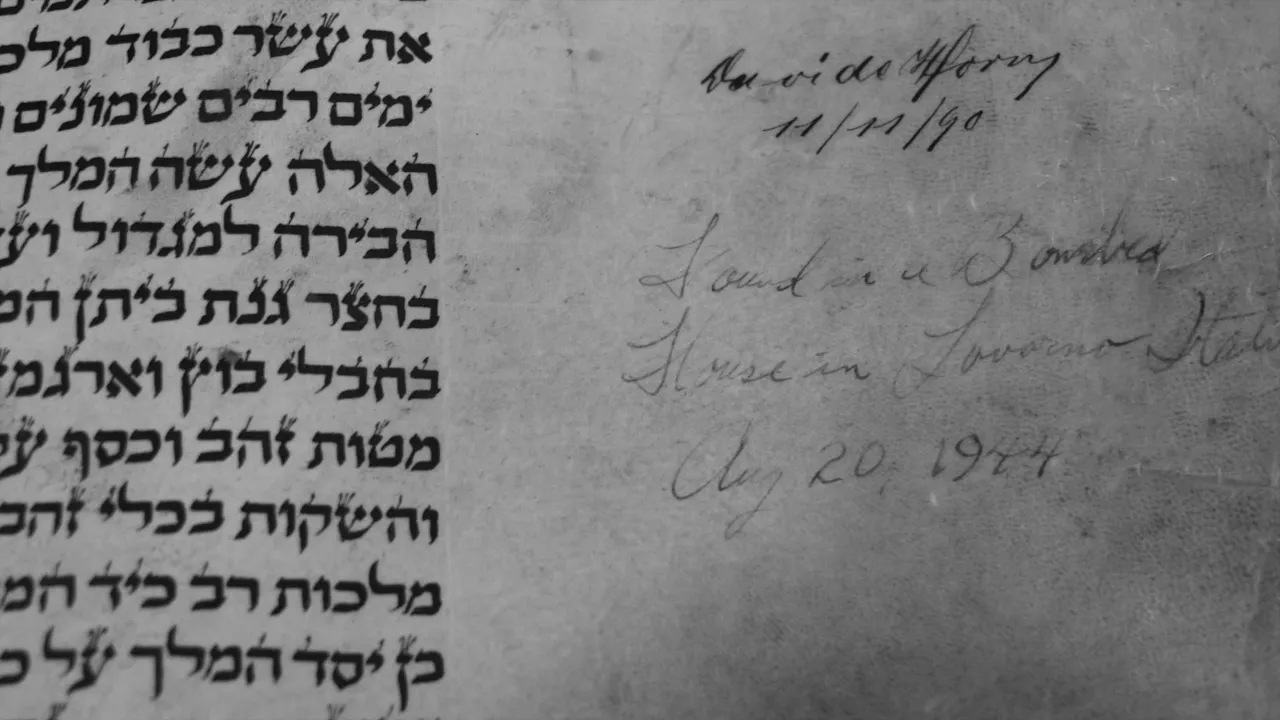 את עשר כבוד מלכ
ימים רבים שמונים
האלה עשה המלך
הבירה למגדול ועד
בחצר גנת ביתן המ
בחבלי בוץ וארגמ
מטות זהב וכסף על
והשקות בכלי זהב
מלכות רב כיד המ
כן יסד המלך על כ
Davide
11/11/90
Found in a Bombed
House in Lovorno Italy
Aug 20, 1944